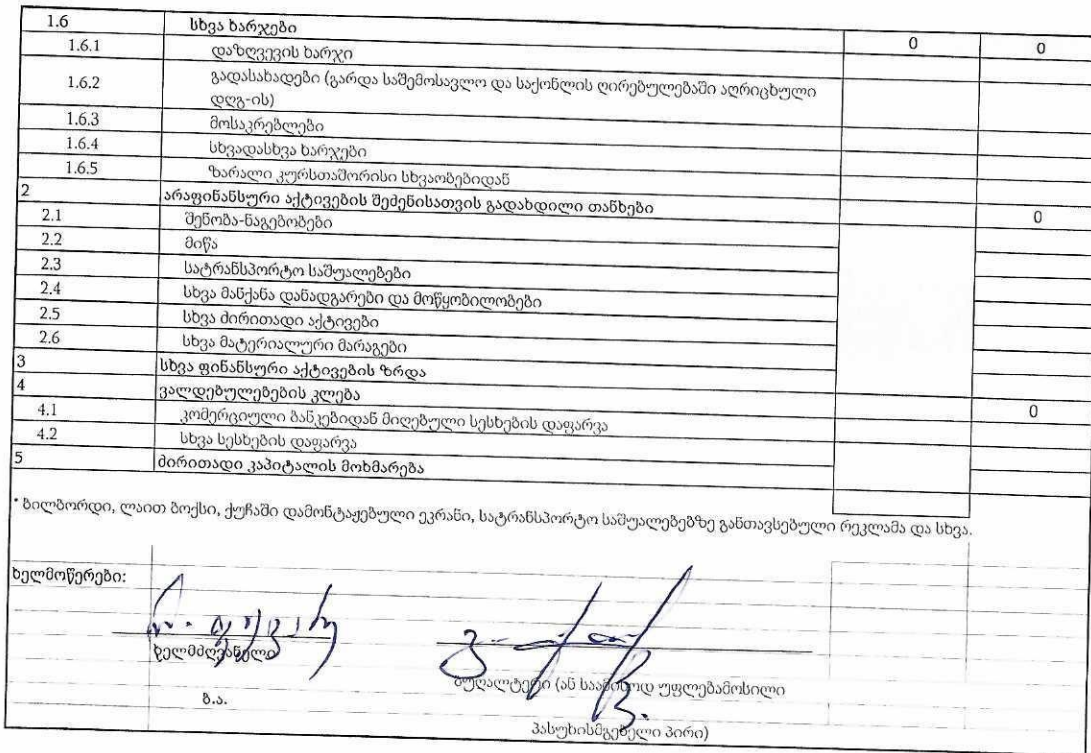 1.6 სხვა ხარჯები 0 0
1.6.1 დაზღვევის ხარჯი
1.6.2 გადასახადები (გარდა საშემოსავლო და საქონლის ღირებულებაში აღრიცხული
დღგ-ის)
1.6.3 მოსაკრებლები
1.6.4 სხვადასხვა ხარჯები
1.6.5 ზარალი კურსთაშორისი სხვაობებიდან
2 არაფინანსური აქტივების შეძენისათვის გადახდილი თანხები 0
2.1 შენობა-ნაგებობები
2.2 მიწა
2.3 სატრანსპორტო საშუალებები
2.4 სხვა მანქანა დანადგარები და მოწყობილობები
2.5 სხვა ძირითადი აქტივები
2.6 სხვა მატერიალური მარაგები
3 სხვა ფინანსური აქტივების ზრდა
4 ვალდებულებების კლება 0
4.1 კომერციული ბანკებიდან მიღებული სესხების დაფარვა
4.2 სხვა სესხების დაფარვა
5 ძირითადი კაპიტალის მოხმარება
* ბილბორდი, ლაით ბოქსი, ქუჩაში დამონტაჟებული ეკრანი, სატრანსპორტო საშუალებებზე განთავსებული რეკლამა და სხვა.
ხელმოწერები:
ხელმძღვანელი
ბუღალტერი (ან საამისოდ უფლებამოსილი
ბ.ა.
პასუხისმგებელი პირი)